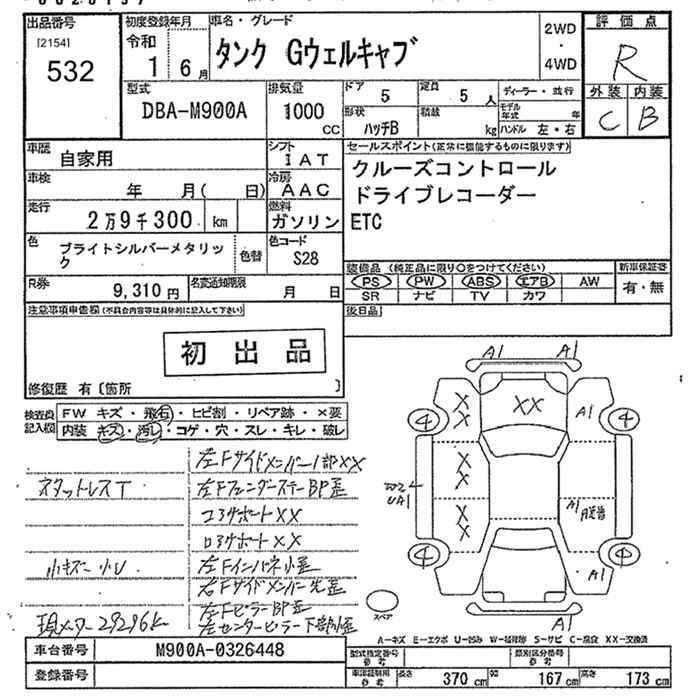 出品番号
[2154]
532
初度登録年月
令和
1 6月
車名・グレード
タンク Gウェルキャブ
2WD
・
4WD
評価点
R
外装 内装
C B
型式
DBA-M900A
排気量
1000
cc
ドア 5
定員 5 人
ディーラー・並行
形状
ハッチB
積載
kg
モデル年式 年
ハンドル 左・右
車歴
自家用
シフト
IAT
車検
年 月( 日)
冷房
AAC
走行
2万9千300 km
燃料
ガソリン
色
ブライトシルバーメタリック
色替
色コード
S28
セールスポイント(正常に機能するものに限ります)
クルーズコントロール
ドライブレコーダー
ETC
R券
9,310円
名変通知期限
月 日
装備品 (純正品に限り○をつけてください)
PS PW ABS エアB AW
SR ナビ TV カワ
新車保証書
有・無
後日品
注意事項申告欄(不具合内容等は具体的に記入して下さい)
初出品
修復歴 有〔箇所 〕
検査員
記入欄
FW キズ・飛石・ヒビ割・リペア跡・×要
内装 キズ・汚レ・コゲ・穴・スレ・キレ・破レ
左Fサイドメンバー XX
左Fフェンダーステー BP歪
コアサポートXX
ロアサポートXX
左Fインパネ小歪
右Fサイドメンバー先歪
左FピラーBP歪
左センターピラー下部小歪
小キズ 小U
現メーター29296k
A1 A1
XX
XX
XX
XX
A1
4
4
4
UA1
A1
A1
A1
スペア
A-キズ E-エクボ U-凹み W-補修跡 S-サビ C-腐食 XX-交換済
車台番号
M900A-0326448
登録番号
型式指定番号
参考
類別区分番号
参考
車検証利用
参考
長さ 370 cm
幅 167 cm
高さ 173 cm